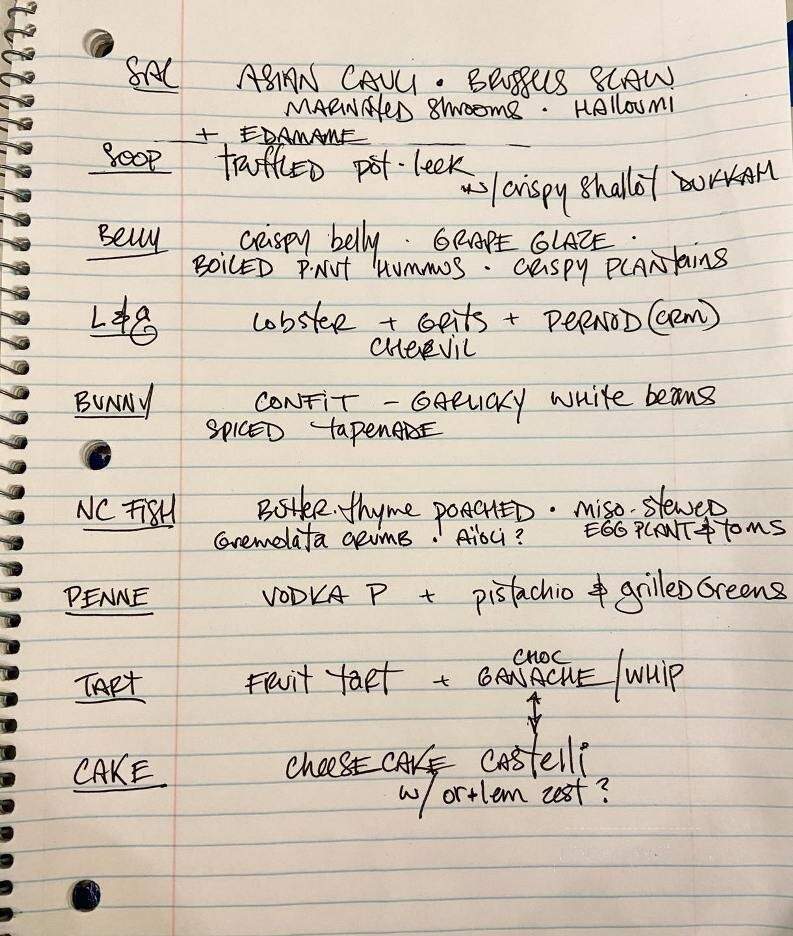 SAL ASIAN CAULI · BRUSSELS SLAW
MARINATED Shrooms · HALLOUMI
+ EDAMAME
SOOP TRUFFLED pot-leek
w/ crispy shallot DUKKAH
Belly CRISPY belly · GRAPE GLAZE ·
BOILED P.NUT HUMMUS · CRISPY PLANTAINS
L & G Lobster + GRITS + PERNOD (CRM)
CHERVIL
BUNNY CONFIT - GARLICKY WHITE beans
SPICED tapENADE
NC FISH BUTTER.thyme POACHED · MISO-STEWED
Gremolata CRUMB · AÏOLI ? EGG PLANT & TOMS
PENNE VODKA P + pistachio & grillED Greens
CHOC
TART FRUIT TART + GANACHE / WHIP
CAKE CHEESE CAKE CASTElli
w/ or+lem zest ?